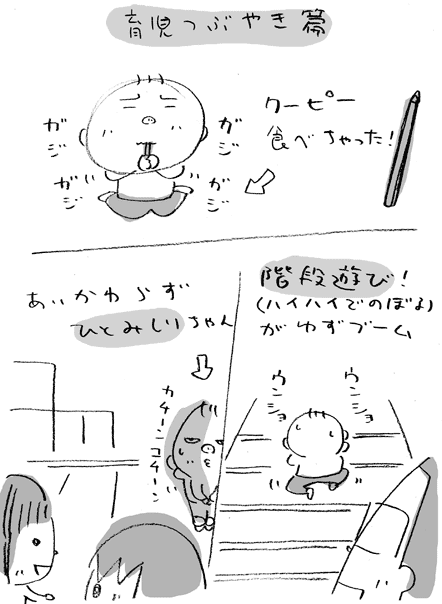 育児つぶやき篇
クーピー
食べちゃった!
ガジ
ガジ
ガジ
ガジ
あいかわらず
ひとみしりちゃん
カチーンコチーン
階段遊び!
(ハイハイでのぼる)
がゆずブーム
ウンショ
ウンショ